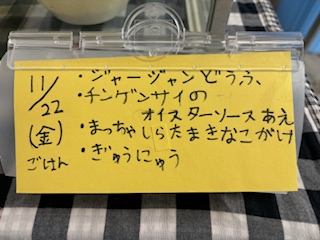 11/22
(金)
ごはん
・ジャージャンどうふ、
・チンゲンサイの
オイスターソースあえ
・まっちゃしらたまきなこがけ
・ぎゅうにゅう